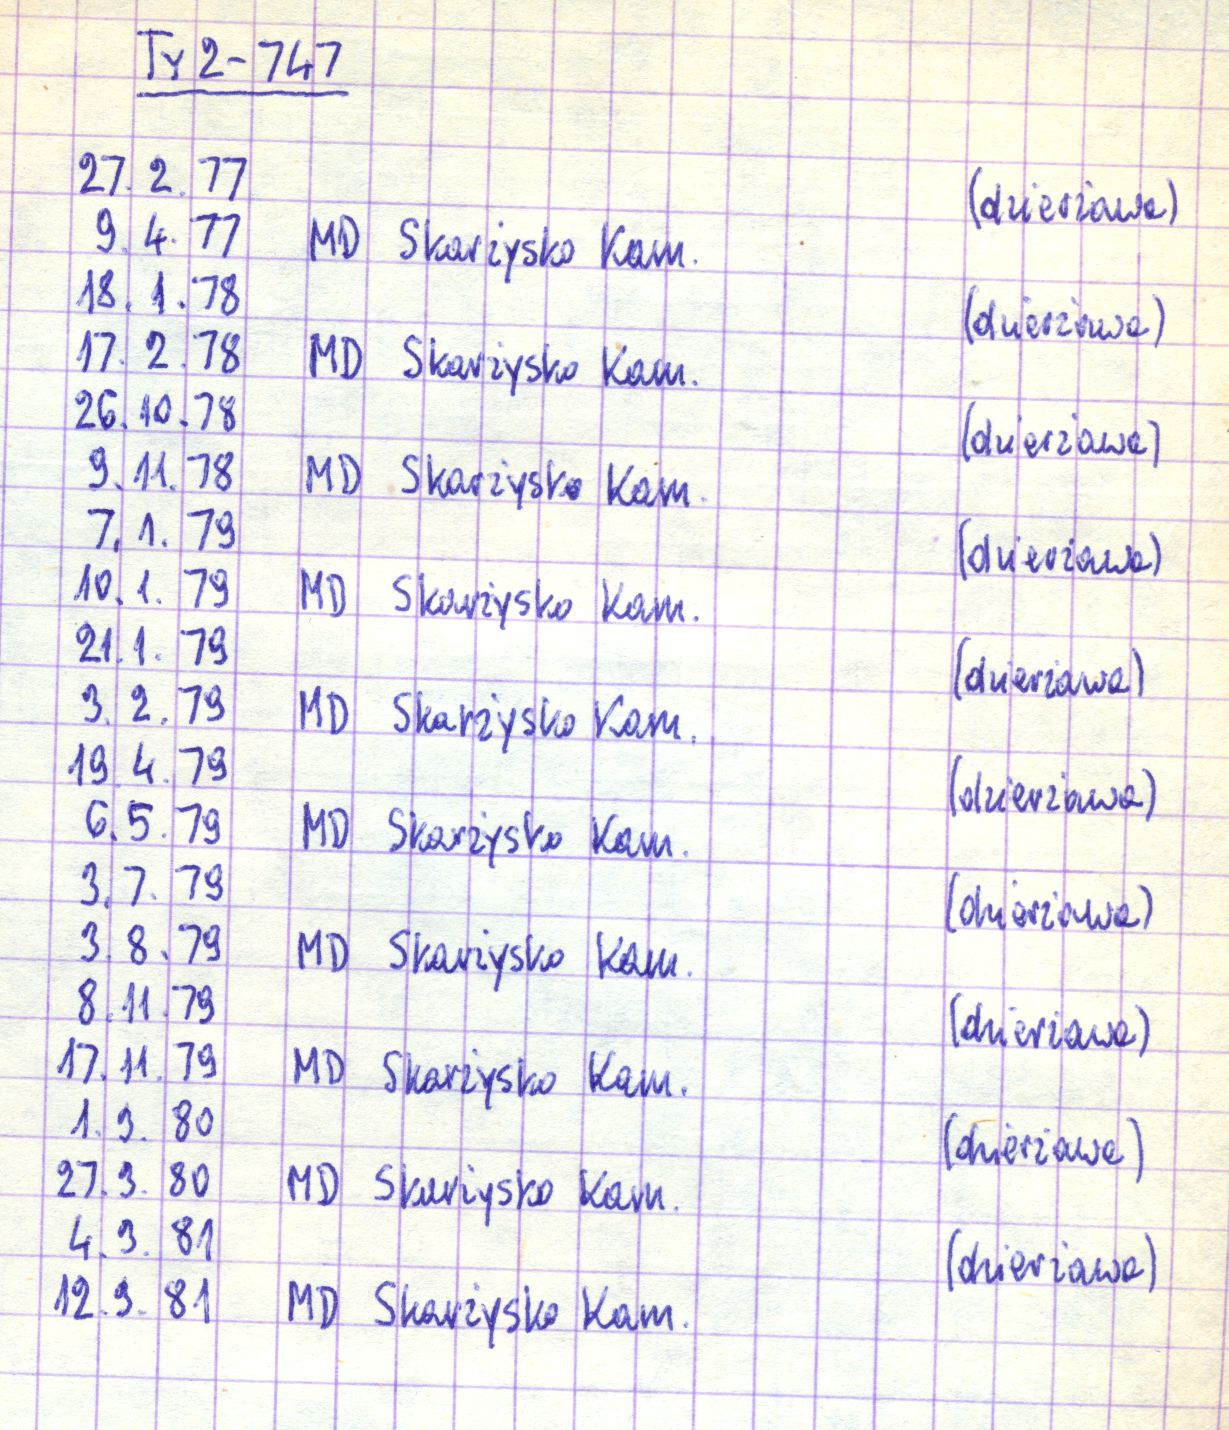 Ty 2-747
27. 2. 77
(dzierżawa)
9. 4. 77 MD Skarżysko Kam.
18. 1. 78
(dzierżawa)
17. 2. 78 MD Skarżysko Kam.
26. 10. 78
(dzierżawa)
9. 11. 78 MD Skarżysko Kam.
7. 1. 79
(dzierżawa)
10. 1. 79 MD Skarżysko Kam.
21. 1. 79
(dzierżawa)
3. 2. 79 MD Skarżysko Kam.
19 4. 79
(dzierżawa)
6. 5. 79 MD Skarżysko Kam.
3. 7. 79
(dzierżawa)
3. 8. 79 MD Skarżysko Kam.
8. 11. 79
(dzierżawa)
17. 11. 79 MD Skarżysko Kam.
1. 3. 80
(dzierżawa)
27. 3. 80 MD Skarżysko Kam.
4. 3. 81
(dzierżawa)
12. 3. 81 MD Skarżysko Kam.